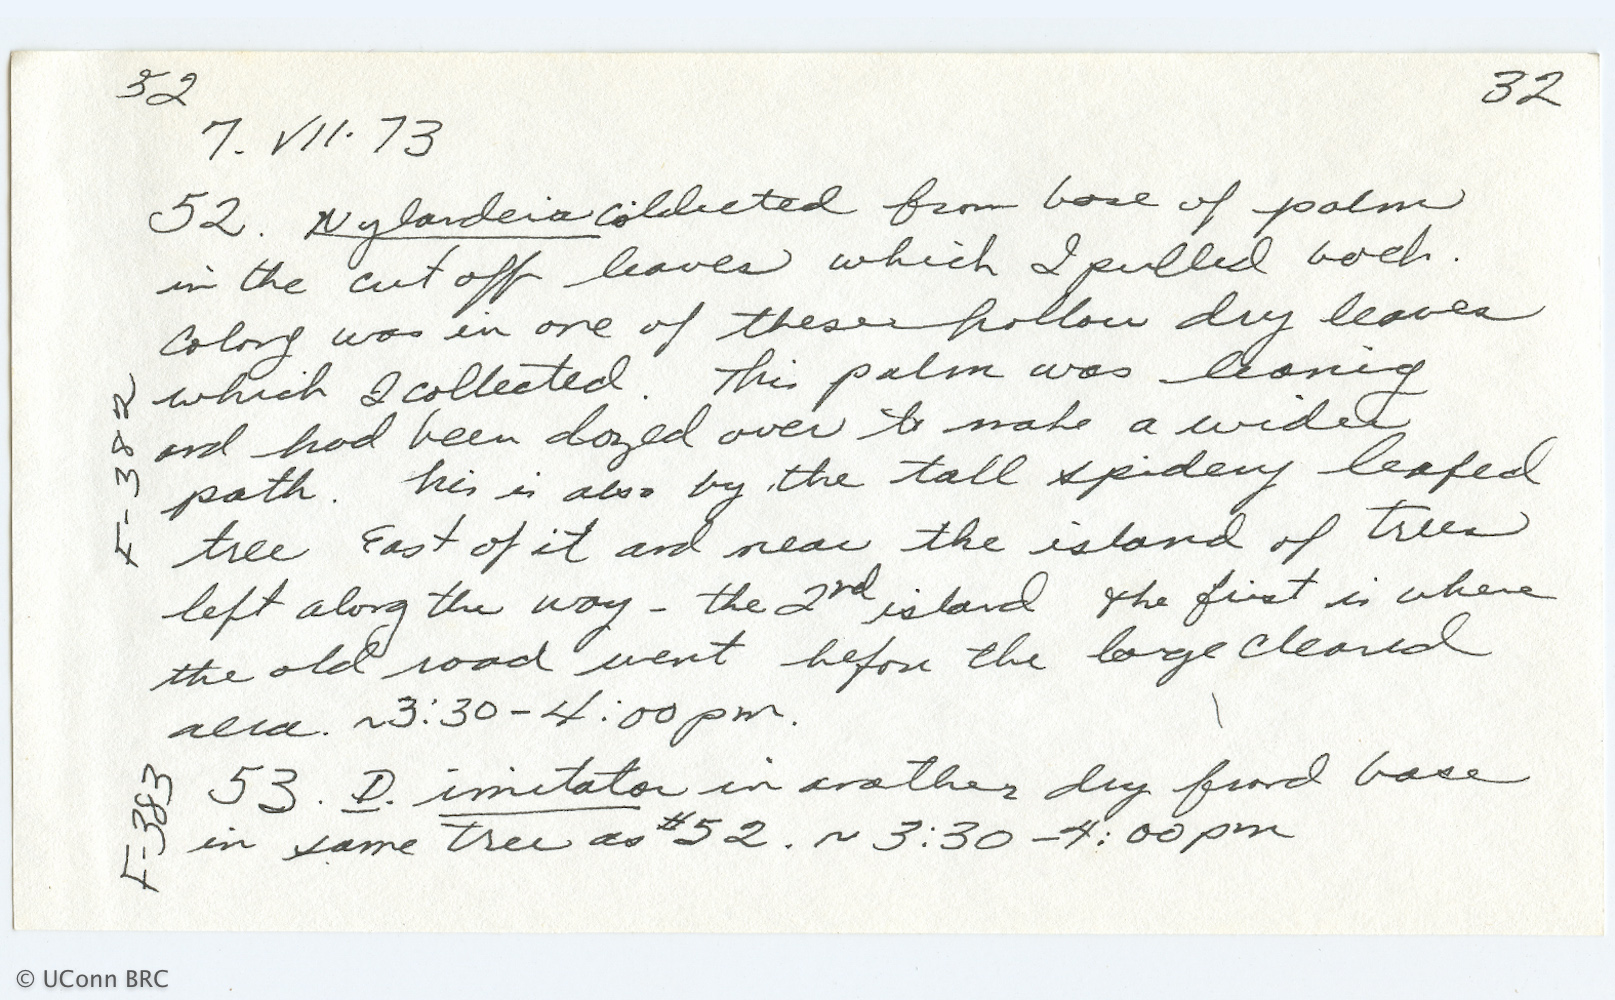 52
32
7. VII. 73
52. Nylanderia collected from base of palm
in the cut off leaves which I pulled back.
Colony was in one of these hollow dry leaves
which I collected. This palm was leaning
and had been dozed over to make a wider
path. This is also by the tall spidery leafed
tree East of it and near the island of trees
left along the way - the 2nd island the first is where
the old road went before the large cleared
area. ~3:30-4:00 pm.
F-382
53. D. imitator in another dry frond base
in same tree as #52. ~ 3:30-4:00 pm
F-383
© UConn BRC